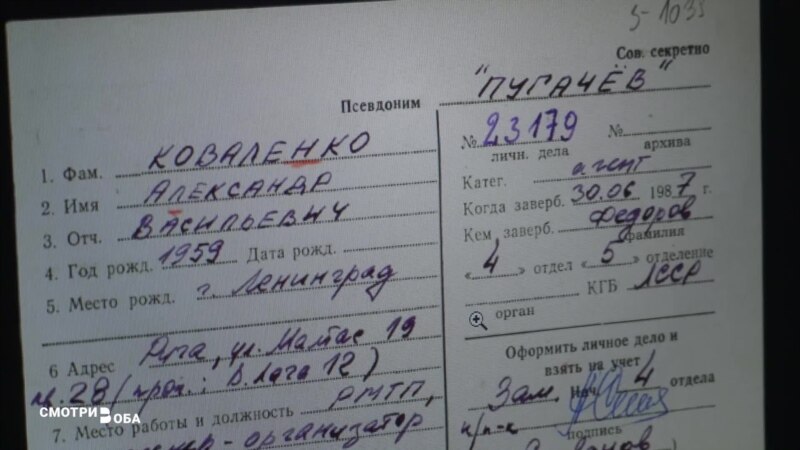 5-1033
Сов. секретно
Псевдоним "ПУГАЧЁВ"
№ 23179 № 
личн. дела архива
1. Фам. КОВАЛЕНКО
Катег. агент
2. Имя АЛЕКСАНДР
Когда заверб. 30.06 1987 г.
3. Отч. ВАСИЛЬЕВИЧ
Кем заверб. Федоров
фамилия
4. Год рожд. 1959 Дата рожд.
«4» отдел «5» отделение
5. Место рожд. г. Ленинград
КГБ ЛССР
орган
6 Адрес Рига, ул. Матас 19
кв. 28 (проп.: В. Лача 12)
Оформить личное дело и
взять на учет
Зам. Нач. 4 отдела
п/п-к
подпись
7. Место работы и должность РМТП,
организатор
СМОТРИ В ОБА